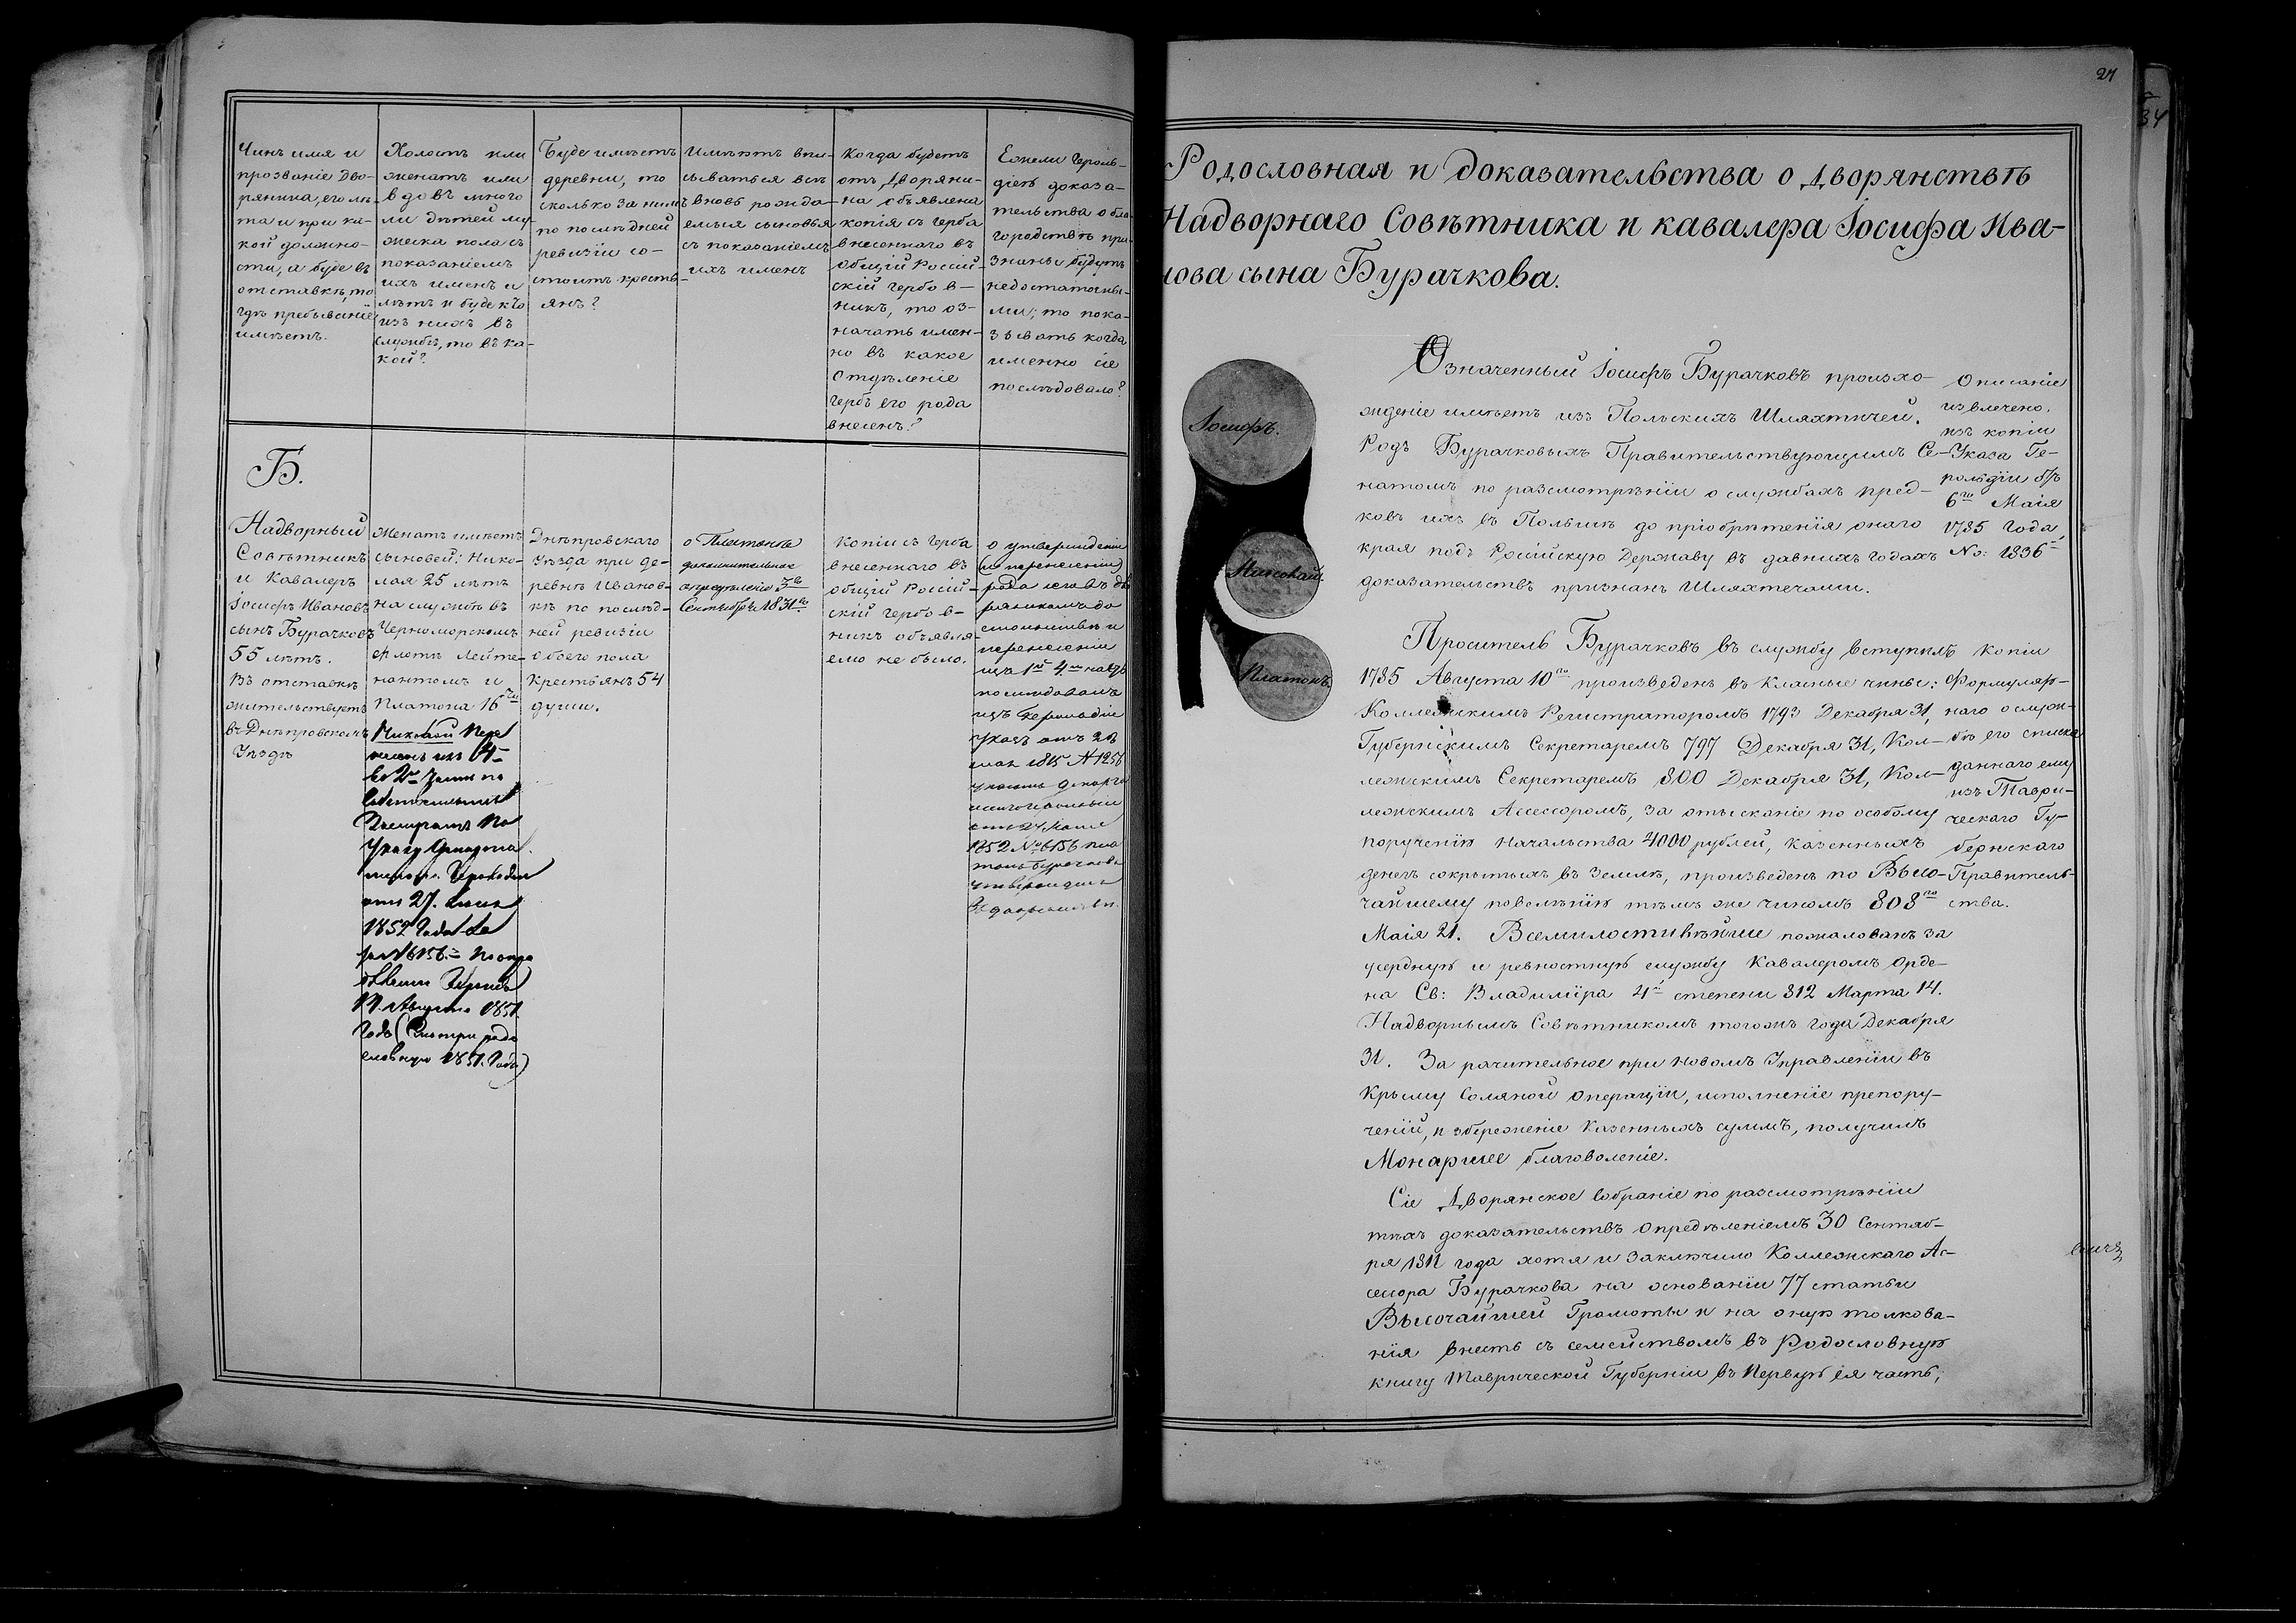 Чинъ имя и
прозваніе Дво-
рянина, его лѣ-
та и при ка-
кой должно-
сти, а буде въ
отставкѣ, то
гдѣ пребываніе
имѣетъ.
Холостъ или
женатъ или
вдовъ много
ли дѣтей му-
жеска пола съ
показаніемъ
ихъ именъ и
лѣтъ и буде кто
изъ нихъ въ
службѣ, то въ ка-
кой?
Буде имѣетъ
деревни, то
сколько за нимъ
по послѣдней
ревизіи со-
стоитъ кресть-
янъ?
Имѣютъ впи-
сываться всѣ
вновь рожда-
емыя сыновья
съ показаніемъ
ихъ именъ
Когда будетъ
отъ Дворяни-
на объявлена
копія съ герба
внесеннаго въ
общій Россій-
скій гербов-
никъ, то оз-
начать имен-
но въ какое
Отдѣленіе
гербъ его рода
внесенъ?
Ежели Героль-
діею доказа-
тельства о бла-
городствѣ при-
знаны будутъ
недостаточны-
ми; то пока-
зывать когда
именно сіе
послѣдовало?
Б.
Надворный
Совѣтникъ
и Кавалеръ
Іосифъ Ивановъ
сынъ Бурачковъ
55 лѣтъ.
Въ отставкѣ
жительствуетъ
въ Днѣпровскомъ
Уѣздѣ
Женатъ имѣетъ
сыновей: Нико-
лая 25 лѣтъ
на службѣ въ
Черноморскомъ
флотѣ Лейте-
нантомъ и
Платона 16ти
Николай Пере
несенъ изъ 4-
во 2ю Части по
собственнымъ
По
Указу Департа
мента Герольдіи
отъ 27.
1852 Года
за №6156.=
Августа 1851.
Года (Смотри родо
словную 1851. Года)
Днѣпровскаго
Уѣзда при де-
ревнѣ Иванов-
кѣ по послѣд-
ней ревизіи
обоего пола
Крестьянъ 54
души.
о Платонѣ
дополнительное
опредѣленіе 3го
Сентября 1831го
Копіи съ герба
внесеннаго въ
общій Россій-
скій гербов-
никъ объявля-
емо не было.
о утвержденіи
(и перенесеніи)
рода сего въ дво
рянскомъ до
стоинствѣ и
перенесеніи
изъ 1й 4ю часть
послѣдовалъ
изъ Герольдіи
указъ отъ 28
мая 1815 №1256
указомъ Депар
отъ 27
1852 №6156 Пла
тонъ Бурачковъ
утвержденъ
въ дворянствѣ.
27
34
Родословная и доказательства о дворянствѣ
Надворнаго Совѣтника и кавалера Іосифа Ива-
нова сына Бурачкова.
Іосифъ.
Николай
Платонъ.
Означенный Іосифъ Бурачковъ происхо-
жденіе имѣетъ изъ Польскихъ Шляхтичей.
Родъ Бурачковыхъ Правительствующимъ Се-
натомъ по разсмотрѣніи о службахъ пред-
ковъ ихъ въ Польшѣ до пріобрѣтенія онаго
края подъ Россійскую Державу въ давнихъ годахъ
доказательствъ признанъ Шляхтечами.
Описаніе
извлечено
изъ копіи
Указа Ге-
рольдіи б/ъ
6го Маія
1785 Года,
№: 1836-
Проситель Бурачковъ въ службу вступилъ
1785 Августа 10го произведенъ въ Класные чины:
Коллежскимъ Регистраторомъ 1793 Декабря 31,
Губернскимъ Секретаремъ 797 Декабря 31, Кол-
лежскимъ Секретаремъ 800 Декабря 31, Кол-
лежскимъ Асессоромъ, за отысканіе по особому
порученію Начальства 4000 рублей, казенныхъ
денегъ сокрытыхъ въ землѣ, произведенъ по Высо-
чайшему повелѣнію тѣмъ же чиномъ 808го
Маія 21. Всемилостивѣйше пожалованъ за
усердную и ревностную службу Кавалеромъ Орде-
на Св: Владиміра 4й степени 812 Марта 14.
Надворнымъ Совѣтникомъ тогожъ года Декабря
31. За рачительное при новомъ Управленіи въ
Крыму Соляной Операціи, исполненіе препору-
ченій, и збереженіе Казенныхъ суммъ, получилъ
Монаршее благоволеніе.
Копіи
Формуляр-
наго о служ-
бѣ его списка
даннаго ему
изъ Таври-
ческаго Гу-
бернскаго
Правитель-
ства.
Сіе Дворянское собраніе по разсмотрѣніи
тѣхъ доказательствъ опредѣленіемъ 30 Сентяб-
ря 1811 года хотя и заключило Коллежскаго Ас-
сесора Бурачкова на основаніи 77 статьи
Высочайшей Грамоты и на оную толкова-
нія внесть съ семействомъ въ Родословную
книгу Таврической Губерніи въ Первую ея часть;